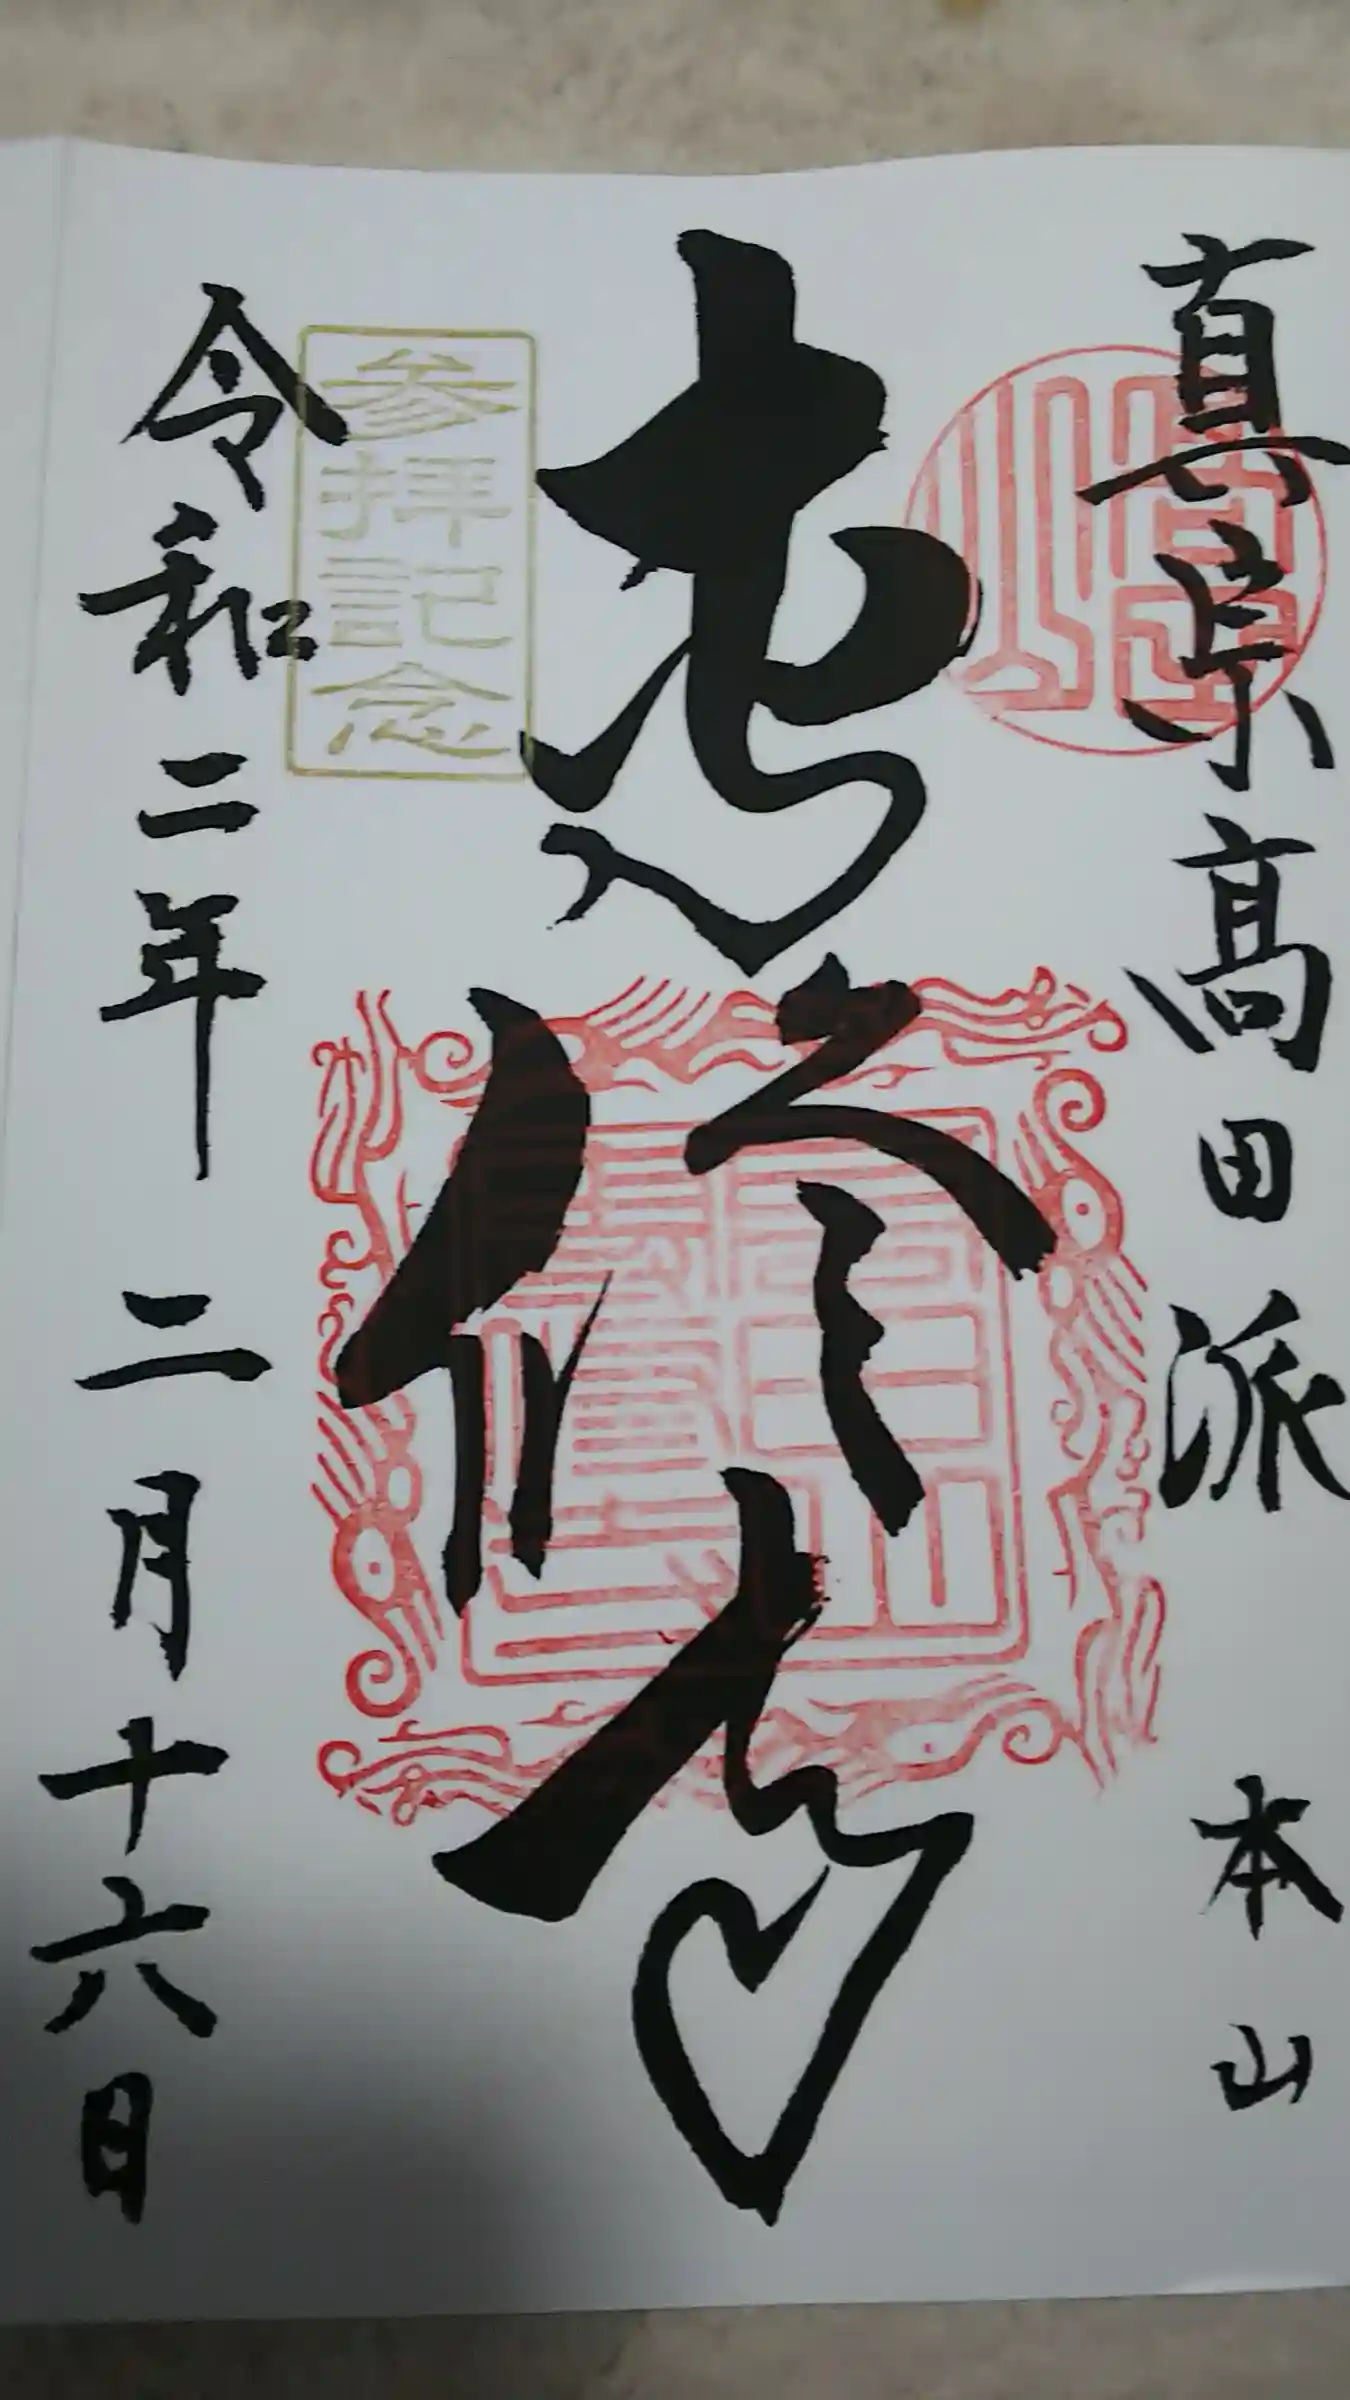 真宗高田派 本山
専修寺
参拝記念
令和二年二月十六日